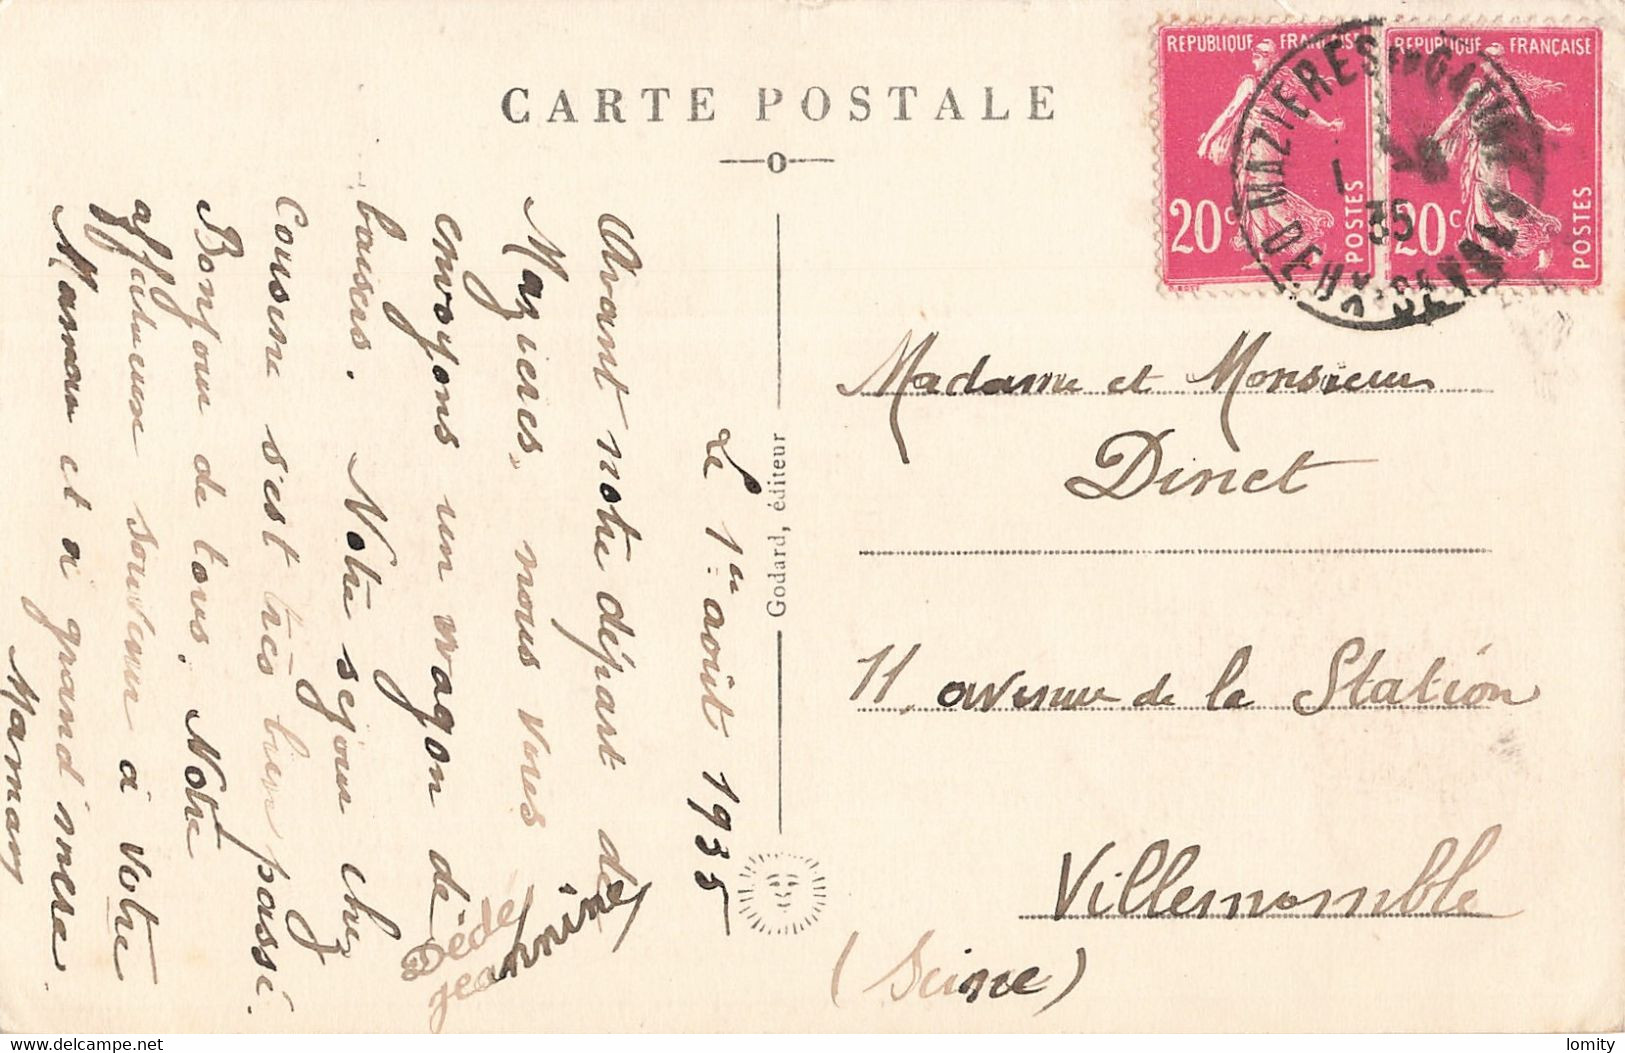 CARTE POSTALE
REPUBLIQUE FRANÇAISE
20c
POSTES
REPUBLIQUE FRANÇAISE
20c
POSTES
MAZIERES EN GATINE
1
35
DEUX-SEVRES
Le 1er août 1935
Avant notre départ de
Mazières, nous vous
envoyons un wagon de
baisers. Notre sejour chez
Cousine s'est très bien passé.
Bonjour de tous. Notre
affectueux souvenir à votre
Maman et à grand'mère.
Maman
Dédé
Jeannine
Godard, éditeur
Madame et Monsieur
Dinet
11, avenue de la Station
Villemomble
(Seine)
delcampe.net
lomity